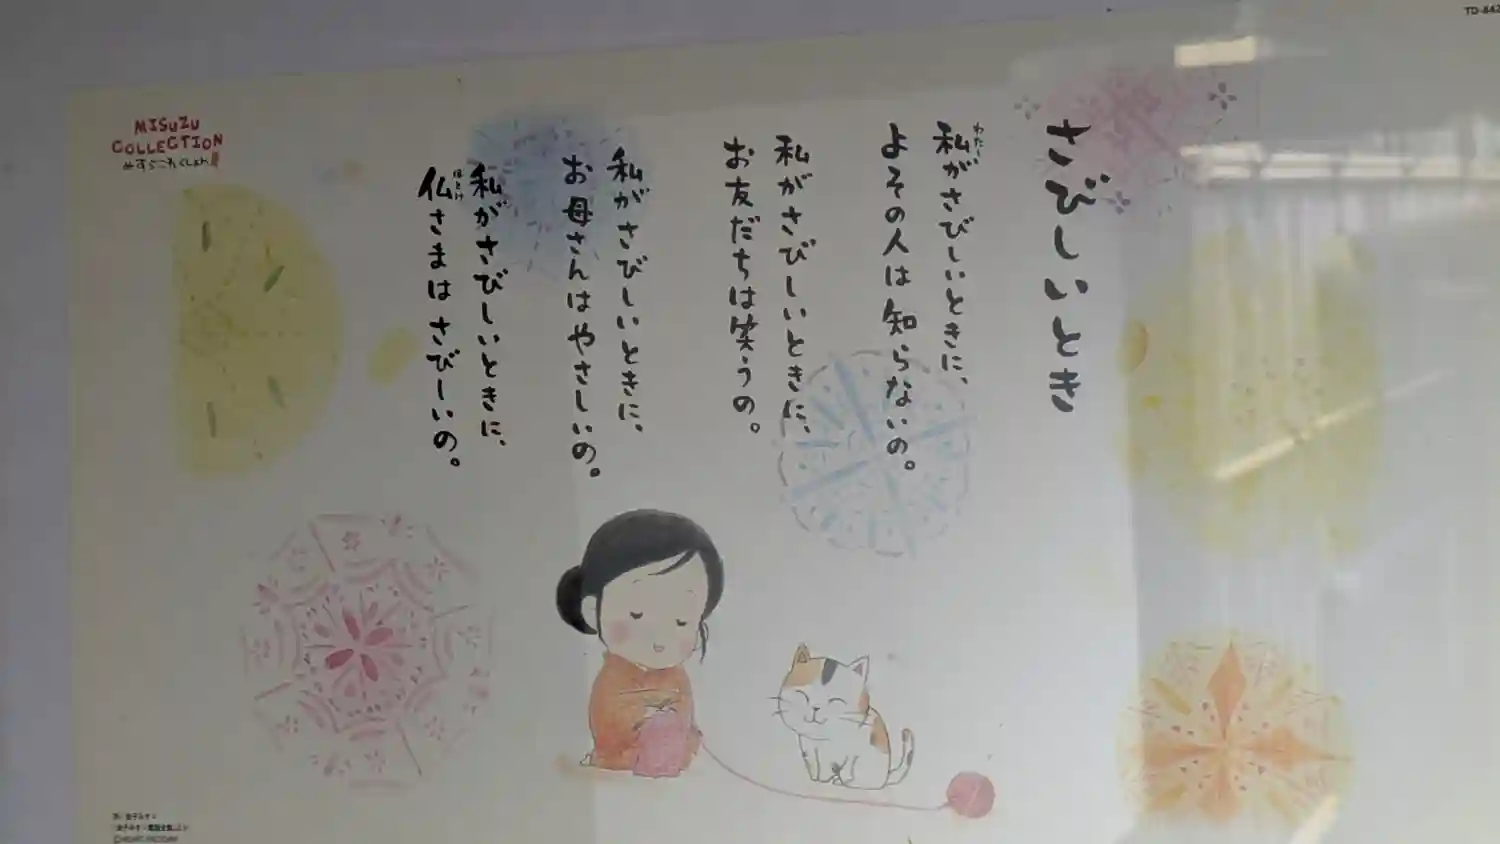 さびしいとき
私がさびしいときに、
よその人は知らないの。
私がさびしいときに、
お友だちは笑うの。
私がさびしいときに、
お母さんはやさしいの。
私がさびしいときに、
仏さまはさびしいの。
MISUZU
COLLECTION
みすゞこれくしょん
TD-842